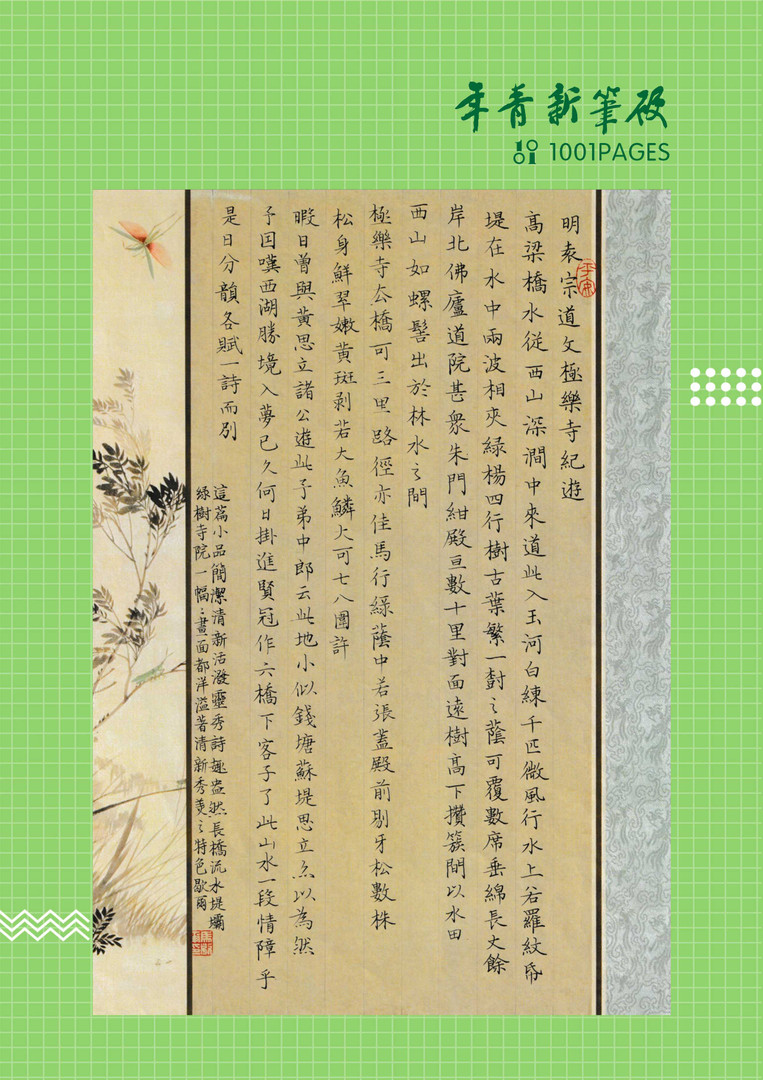 年青新筆砚
1001PAGES
明袁宗道文極樂寺紀遊
高梁橋水従西山深澗中來道此入玉河白練千匹微風行水上若羅紋㡳
堤在水中兩波相夾緑楊四行樹古葉繁一樹之蔭可覆數席垂綿長丈餘
岸北佛廬道院甚衆朱門紺殿亘數十里對面遠樹高下攢簇間以水田
西山如螺髻出於林水之間
極樂寺去橋可三里路徑亦佳馬行緑蔭中若張蓋殿前剔牙松數株
松身鮮翠嫩黄斑剥若大魚鱗大可七八圍許
暇日曽與黄思立諸公遊此予弟中郎云此地小似錢塘蘇堤思立亦以為然
予因嘆西湖勝境入夢已久何日掛進賢冠作六橋下客子了此山水一段情障乎
是日分韻各賦一詩而別
這篇小品簡潔清新活潑靈秀詩趣盎然長橋流水堤壩
緑樹寺院一幅幅畫面都洋溢著清新秀美之特色